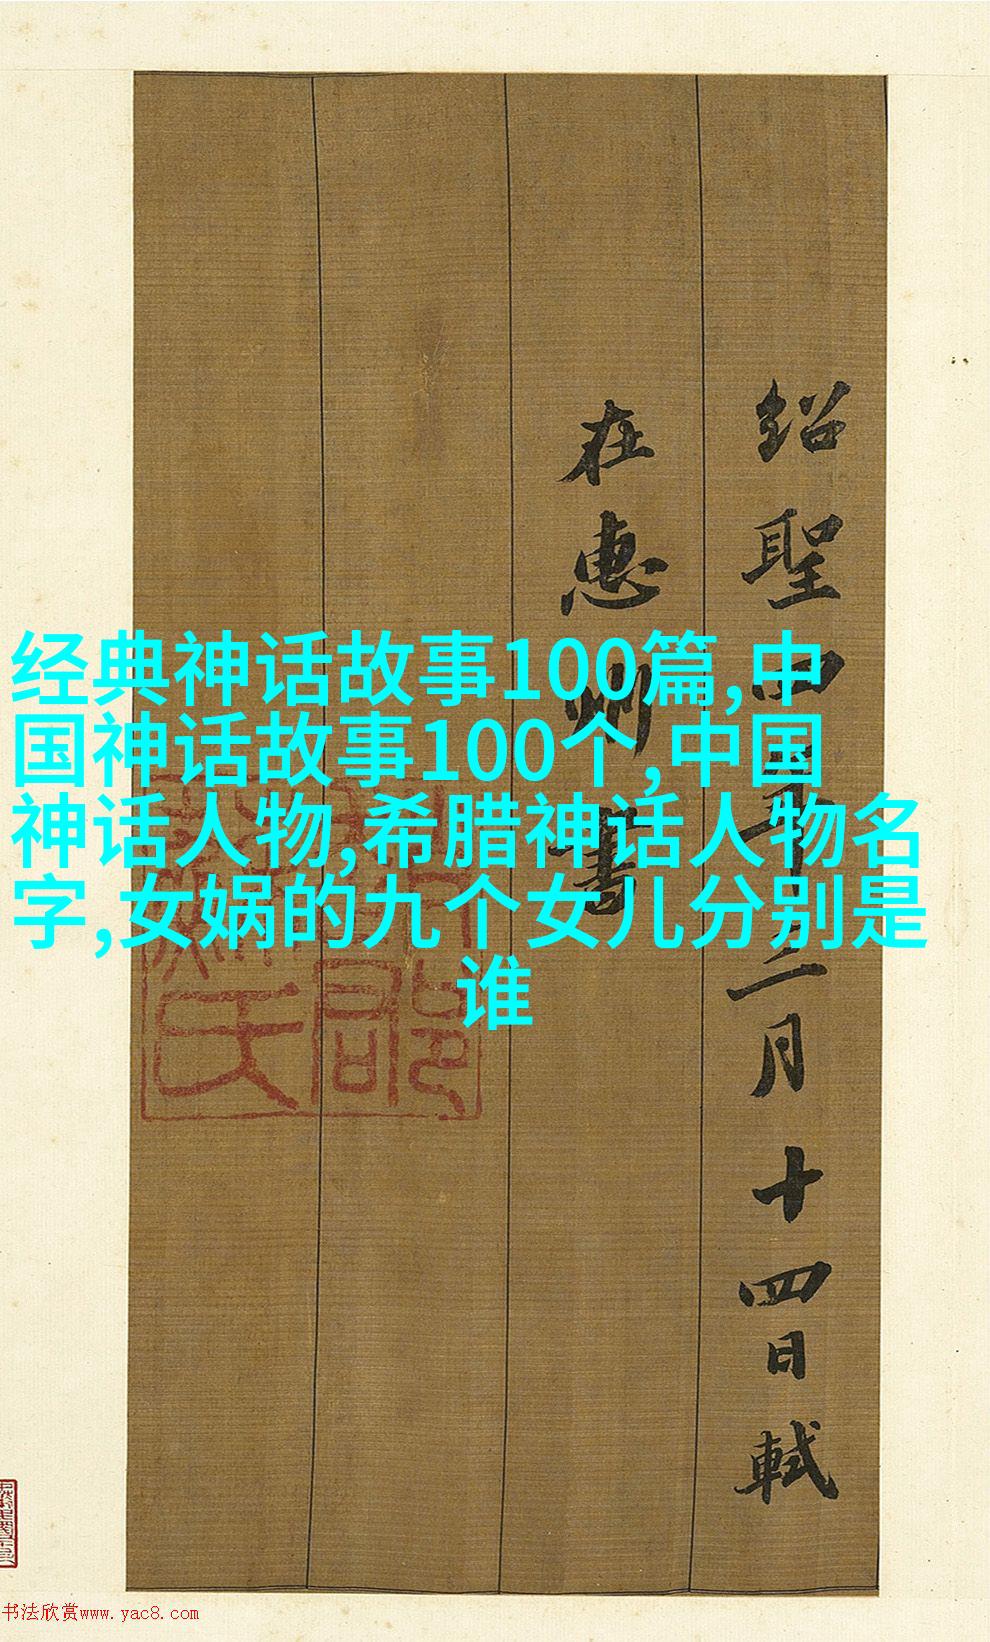 经典神话故事100篇,中
国神话故事100个,中国
神话人物,希腊神话人物名
字,女娲的九个女儿分别是
谁
紹聖四年二月十四日軾
在惠州書
书法欣赏www.yac8.com